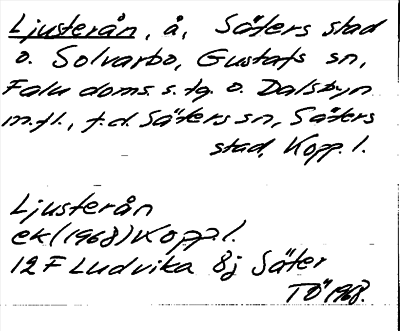 Ljusterån, å, Säters stad
o. Solvarbo, Gustafs sn,
Falu doms. s. tg. o. Dalsbyn
m.fl., f.d. Säters sn, Säters
stad, Kopp. l.
Ljusterån
ek (1968) Kopp. l.
12 F Ludvika 8j Säter
TÖ 1968.